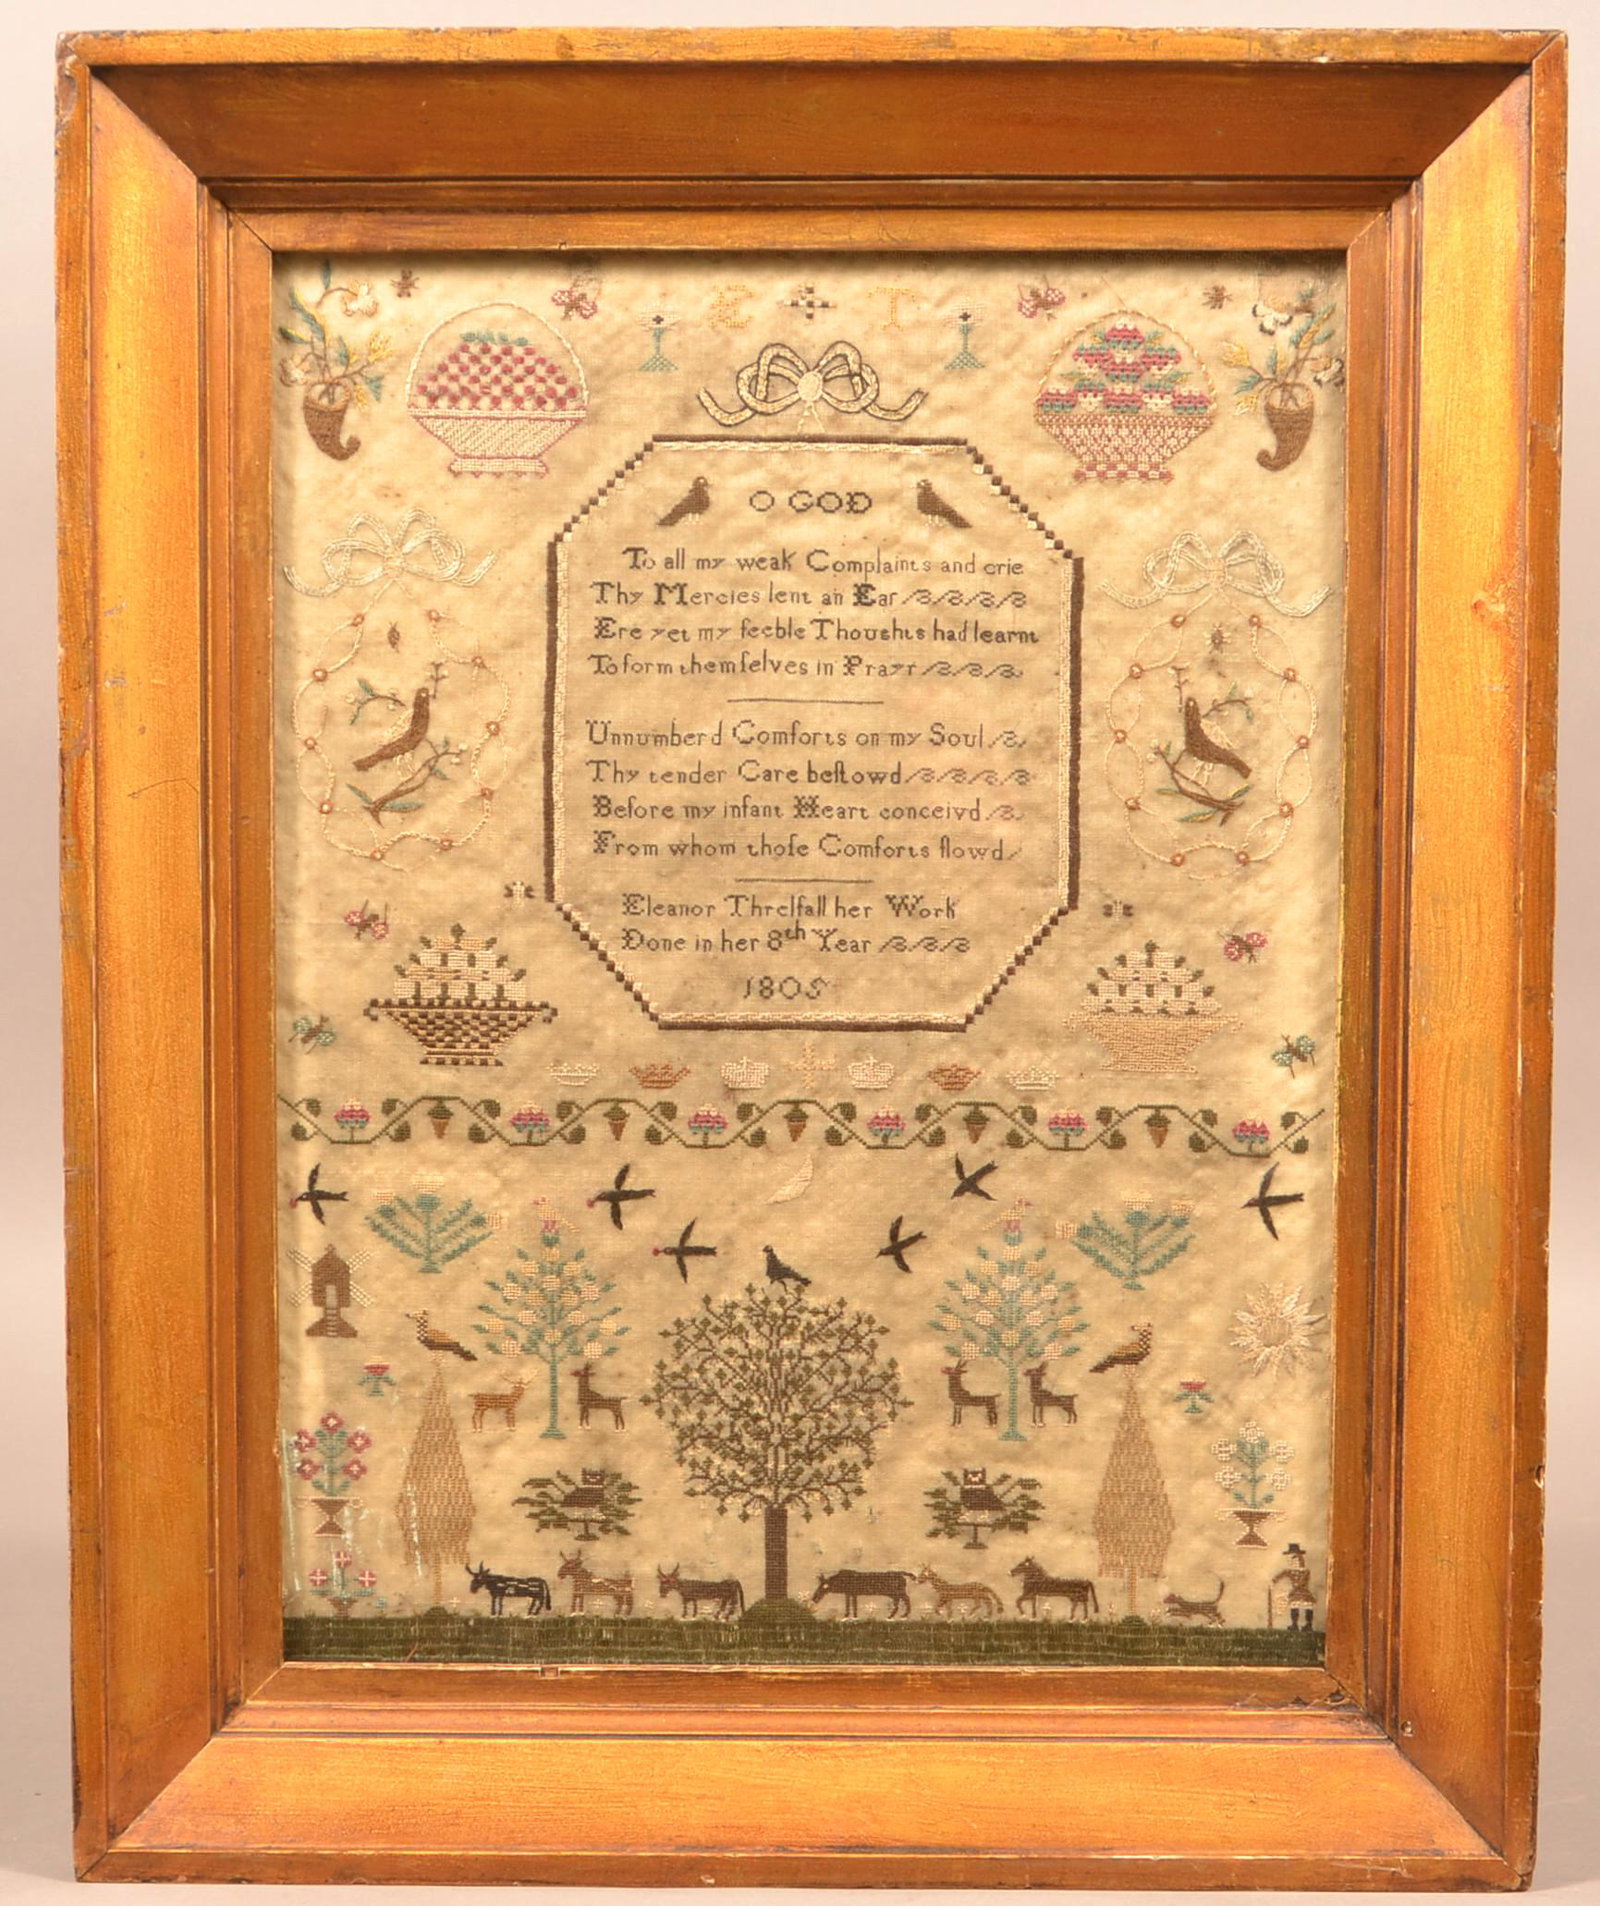 E T
O GOD
To all my weak Complaints and crie
Thy Mercies lent an Ear
Ere yet my feeble Thoughts had learnt
To form themſelves in Prayr
Unnumberd Comforts on my Soul
Thy tender Care beſtowd
Before my infant Heart conceivd
From whom thoſe Comforts flowd
Eleanor Threlfall her Work
Done in her 8th Year
1805